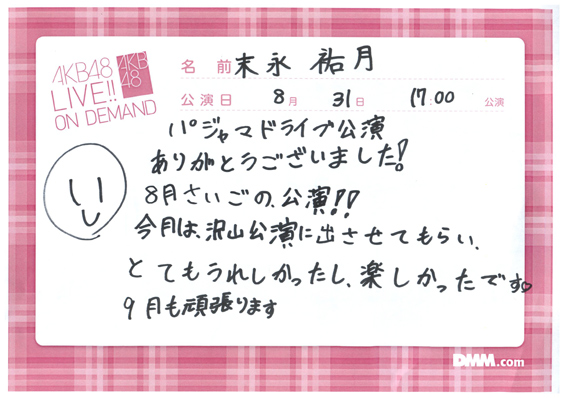 AKB48
LIVE!!
ON DEMAND
AKB
48
名 前 末永 祐月
公演日 8月 31日 17:00 公演
パジャマドライブ公演
ありがとうございました!
8月さいごの、公演!!
今月は、沢山公演に出させてもらい、
とてもうれしかったし、楽しかったです♡
9月も頑張ります
DMM.com